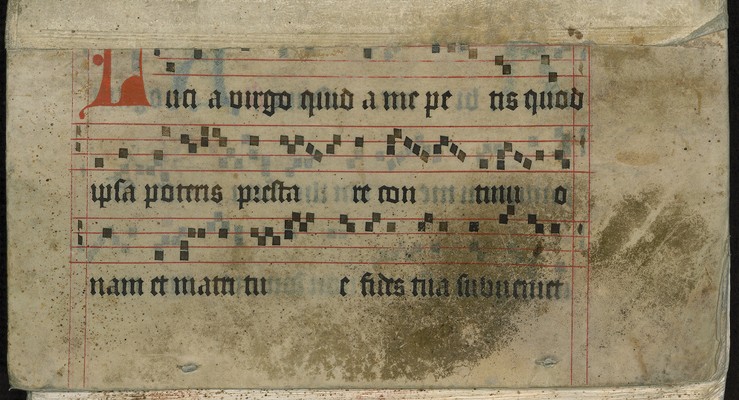 Luci a virgo quid a me pe tis quod
ipsa poteris presta re con tinu o
nam et matri tu e fides tua subueniet